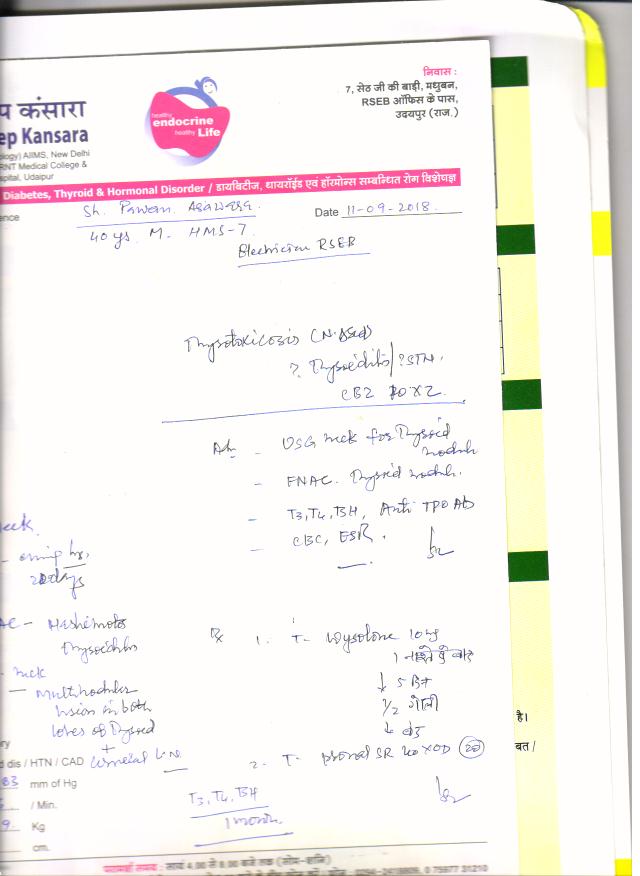 निवास :
7, सेठ जी की बाड़ी, मधुबन,
RSEB ऑफिस के पास,
उदयपुर (राज.)
healthy
endocrine
healthy Life
प कंसारा
ep Kansara
ology) AIIMS, New Delhi
RNT Medical College &
spital, Udaipur
Diabetes, Thyroid & Hormonal Disorder / डायबिटीज, थायरॉईड एवं हॉरमोन्स सम्बन्धित रोग विशेषज्ञ
ence
Sh. Pawan Asawara.
Date 11-09-2018.
40 ys. M. HMS-7.
Electrician RSEB
Thyrotoxicosis
? Thyroiditis / ? STN.
CBZ 10 x 2.
Adv - USG neck for Thyroid
nodule
- FNAC. Thyroid nodule.
- T3, T4, TSH, Anti TPO Ab
- CBC, ESR.
eek
20 days
AC - Hashimoto
Thyroiditis
neck
- Multinodular
lesion in both
lobes of Thyroid
+
Cervical L.N.
Rx 1. T- Wysolone 10 mg
1 नाश्ते के बाद
↓ 5 दिन
1/2 गोली
↓ बंद
2. T- Pronal SR 40 x OD (20)
T3, T4, TSH
1 month.
ry
d dis / HTN / CAD
83 mm of Hg
/ Min.
9 Kg
cm.
है।
बत /
परामर्श समय : सायं 4.00 से 8.00 बजे तक (सोम-शनि)